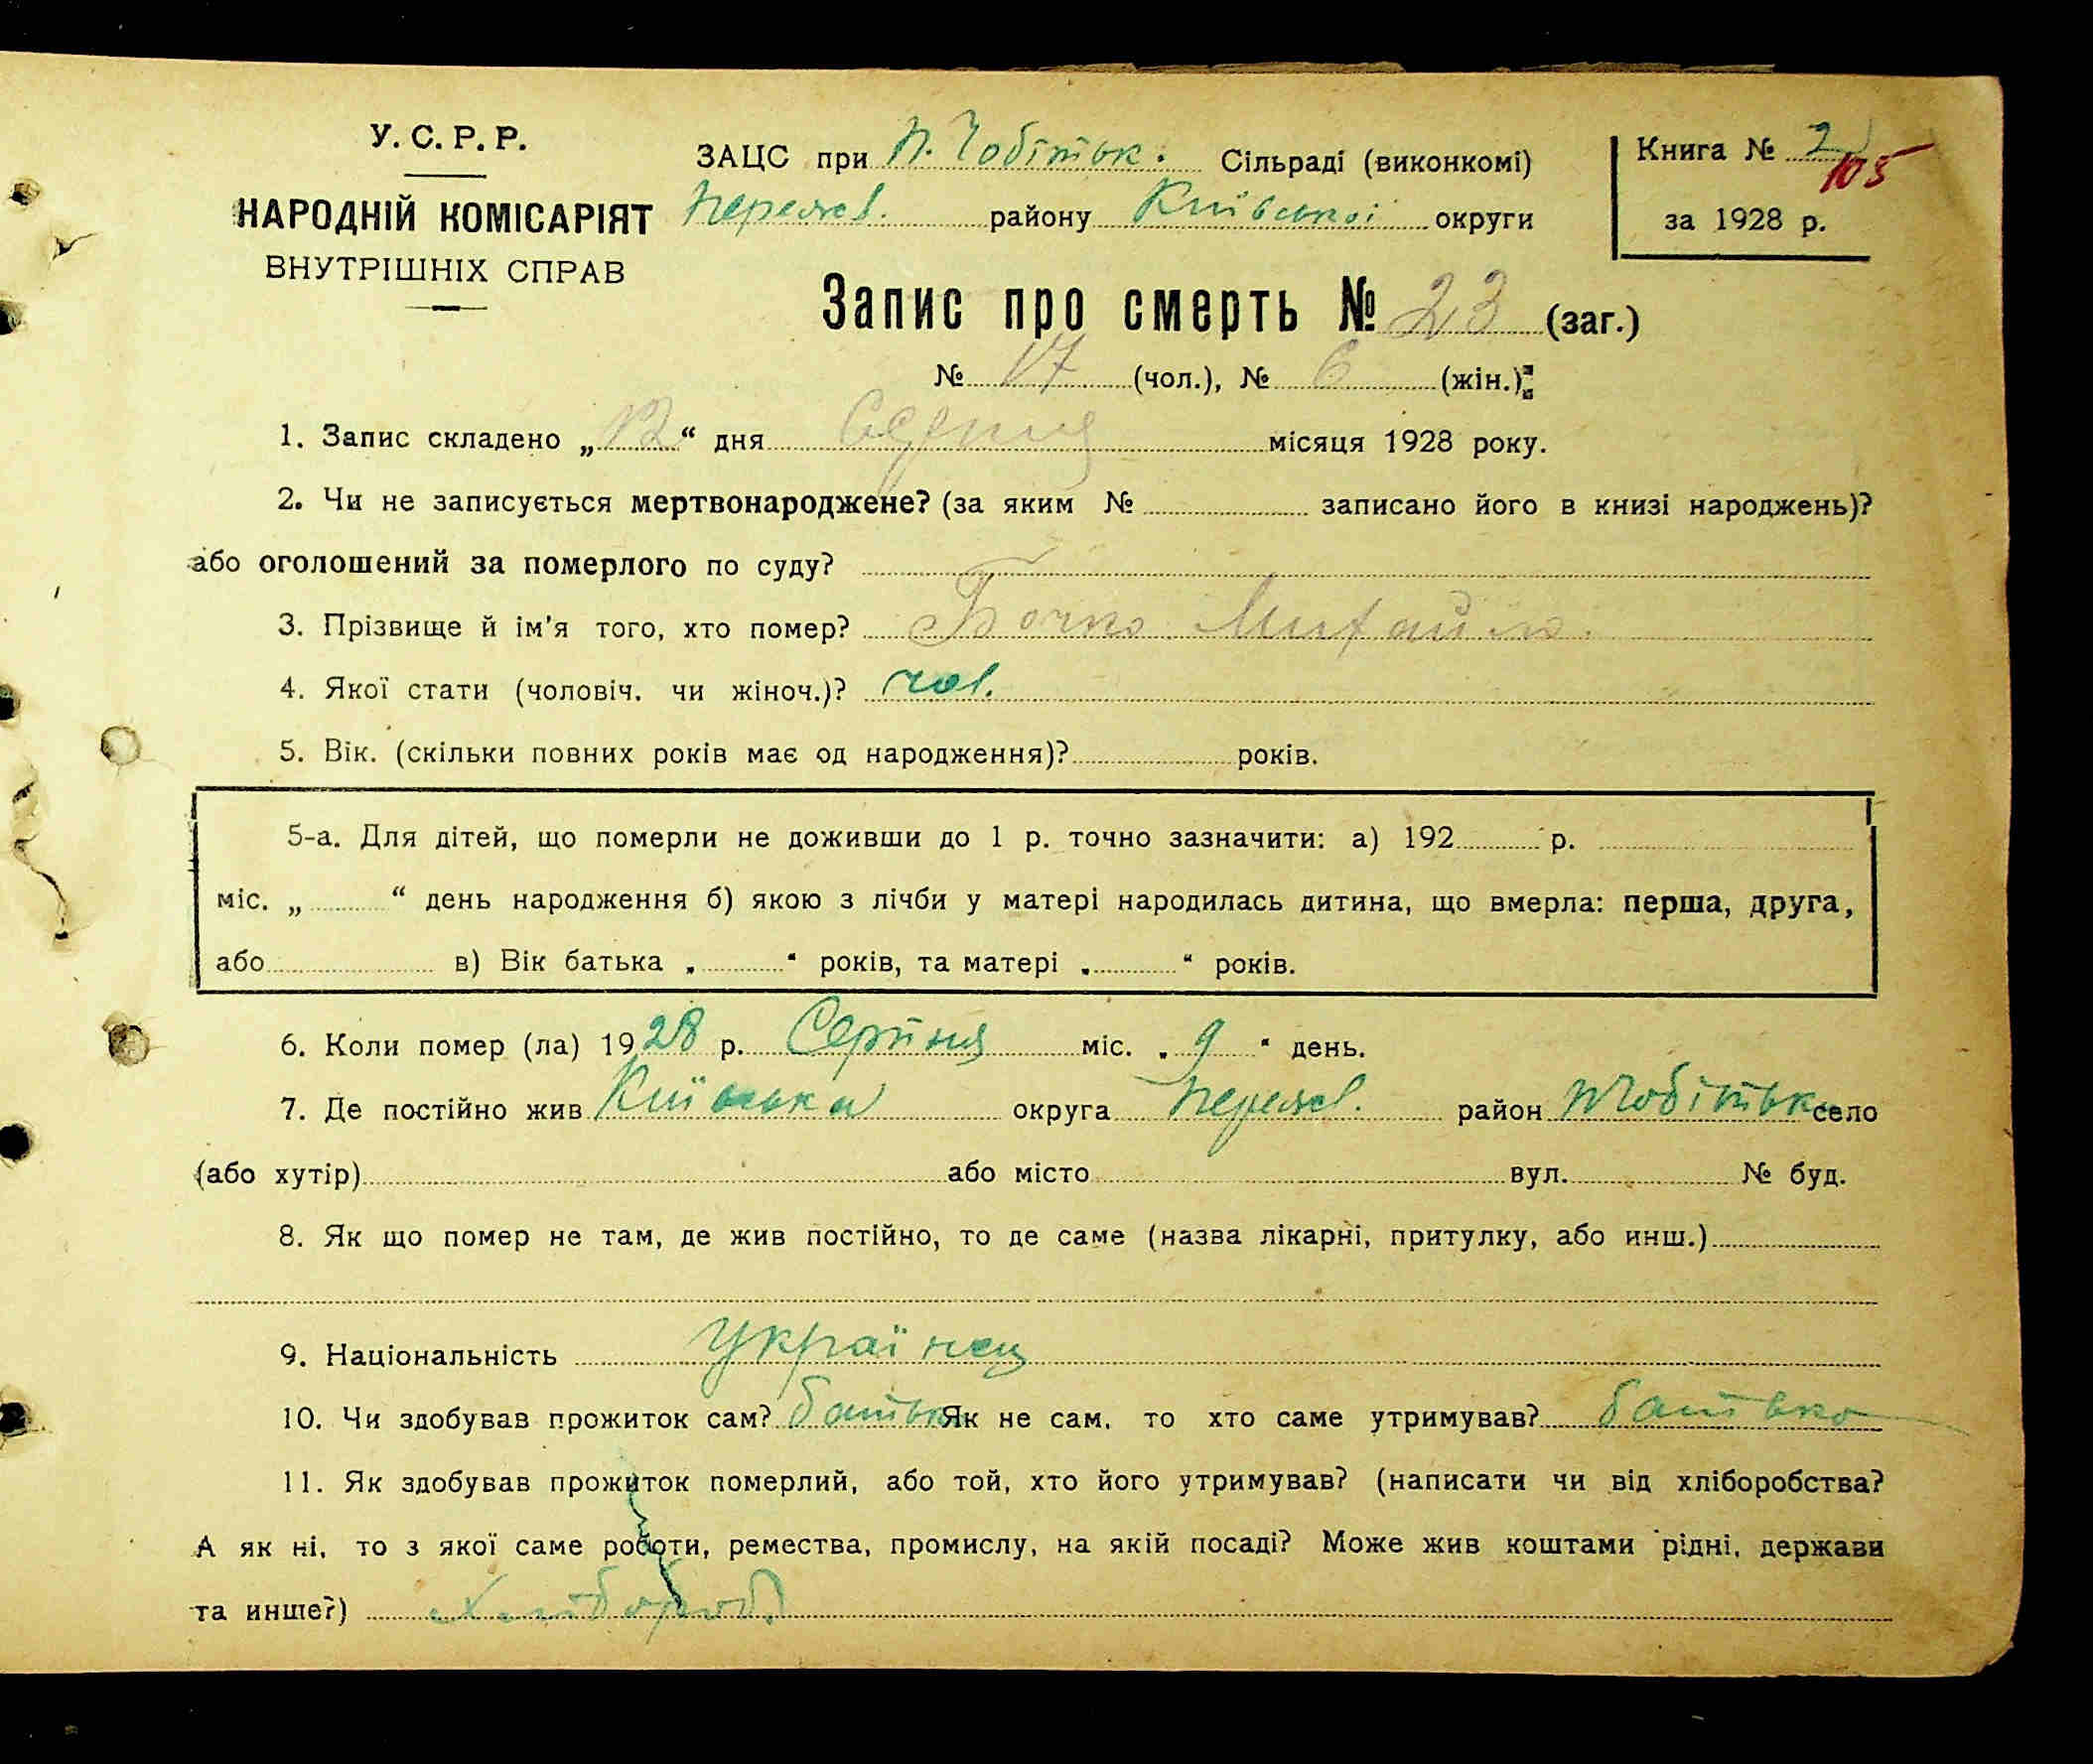 У.С.Р.Р.
НАРОДНІЙ КОМІСАРІЯТ
ВНУТРІШНІХ СПРАВ
ЗАЦС при П. Чобітьк. Сільраді (виконкомі)
Переясл. району Київської округи
Книга № 2
105
за 1928 р.
Запис про смерть № 23 (заг.)
№ 17 (чол.), № 6 (жін.)
1. Запис складено „12“ дня Серпня місяця 1928 року.
2. Чи не записується мертвонароджене? (за яким № записано його в книзі народжень)?
або оголошений за померлого по суду?
3. Прізвище й ім'я того, хто помер? Бочко Михайло.
4. Якої стати (чоловіч. чи жіноч.)? чол.
5. Вік. (скільки повних років має од народження)? років.
5-а. Для дітей, що померли не доживши до 1 р. точно зазначити: а) 192 р.
міс. „ “ день народження б) якою з лічби у матері народилась дитина, що вмерла: перша, друга,
або в) Вік батька „ “ років, та матері „ “ років.
6. Коли помер (ла) 1928 р. Серпня міс. „9“ день.
7. Де постійно жив Київська округа Переясл. район П Чобітьк село
(або хутір) або місто вул. № буд.
8. Як що помер не там, де жив постійно, то де саме (назва лікарні, притулку, або инш.)
9. Національність Українец
10. Чи здобував прожиток сам? батько Як не сам, то хто саме утримував? батько
11. Як здобував прожиток померлий, або той, хто його утримував? (написати чи від хліборобства?
А як ні, то з якої саме роботи, ремества, промислу, на якій посаді? Може жив коштами рідні, держави
та инше?) Хлібороб.